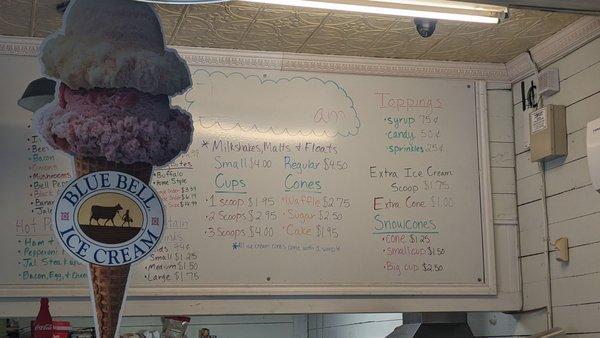 am
*Milkshakes, Malts & Floats
Small $4.00 Regular $4.50
Cups
1 scoop $1.95
2 Scoops $2.95
3 Scoops $4.00
Cones
Waffle $2.75
Sugar $2.50
Cake $1.95
*All ice cream cones come with 1 scoop
Toppings
syrup 75¢
candy 50¢
sprinkles 25¢
Extra Ice Cream
Scoop $1.75
Extra Cone $1.00
Snowcones
cone $1.25
small cup $1.50
Big cup $2.50
Bacon
Mushrooms
Bell
Black
Hot
Ham
Pepperoni
Bacon, Egg, &
Buffalo
Home Style
Small $1.25
Medium $1.50
Large $1.75
BLUE BELL
ICE CREAM
Coca-Cola